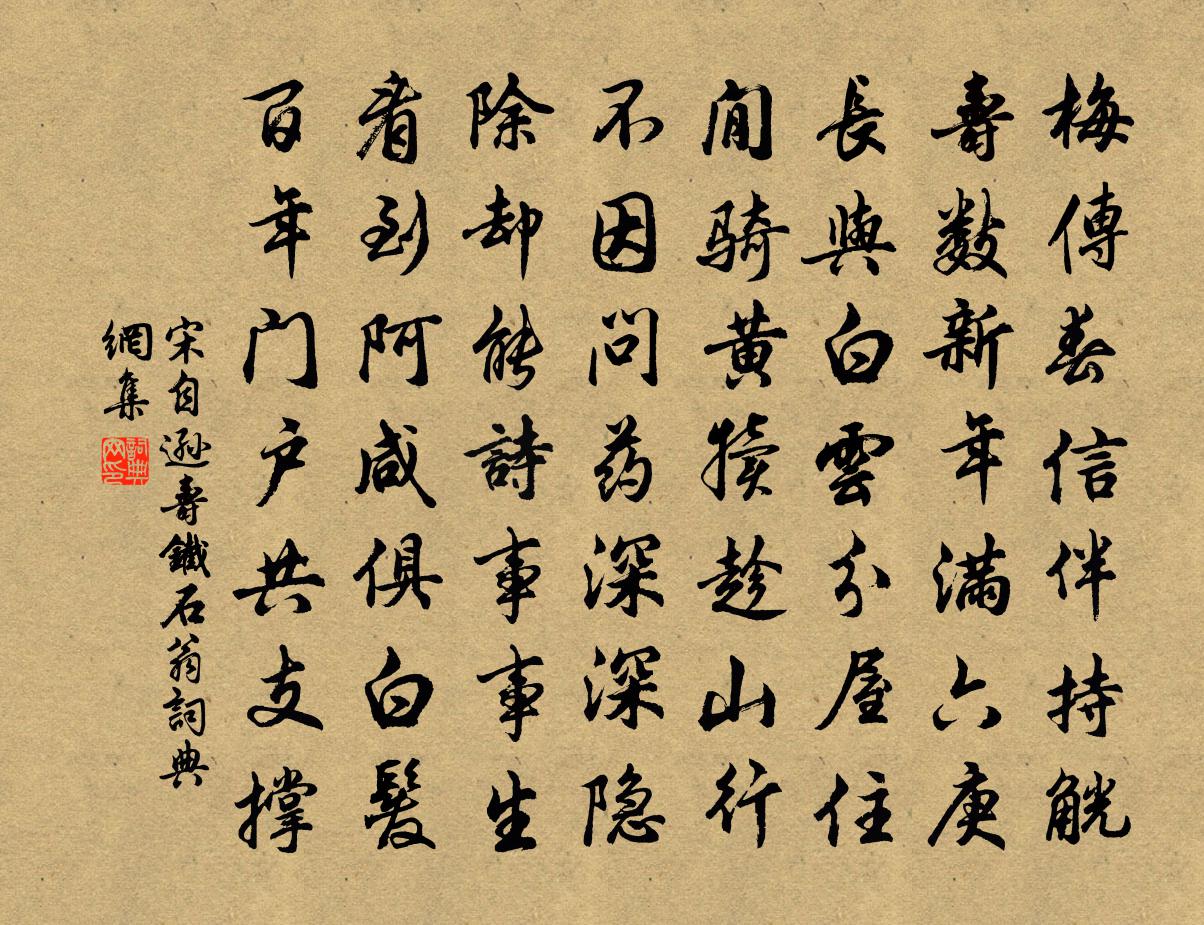 梅傳春信伴持觥
壽數新年滿六庚
長與白雲分屋住
閒騎黃犢趁山行
不因問药深深隐
除却能詩事事生
看到阿咸俱白髮
百年门户共支撑
宋自遜壽鐵石翁詞典
網集
詞典網印